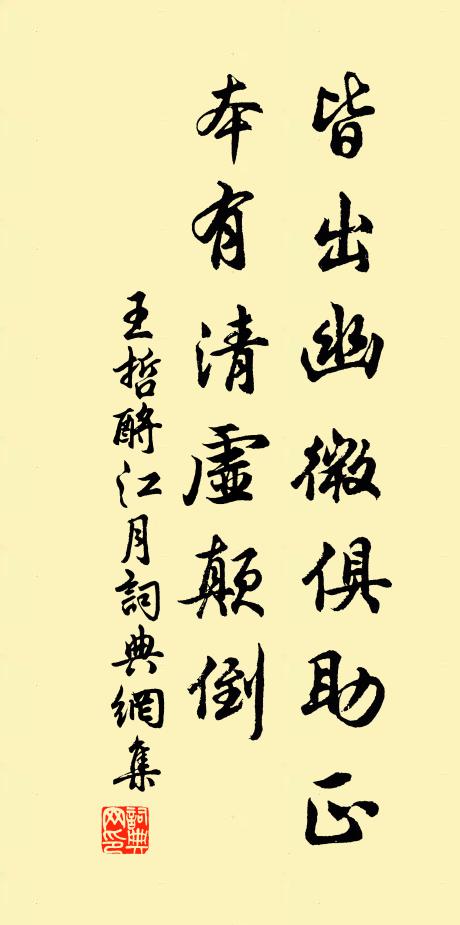 皆出幽微俱助正
本有清虛顛倒
王哲酹江月詞典網集
詞典網印